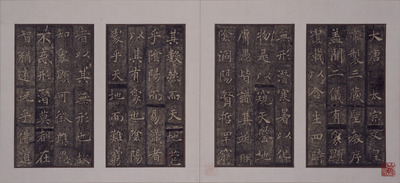 大唐太宗文皇
帝製三藏聖教序
蓋聞二儀有像顯
覆載以含生四時
無形潛寒暑以化
物是以窺天鑑地
庸愚皆識其端明
陰洞陽賢哲罕窮
其數然而天地苞
乎陰陽而易識者
以其有像也陰陽
處乎天地而難窮
者以其無形也故
知像顯可徵雖愚
不惑形潛莫覩在
智猶迷況乎佛道